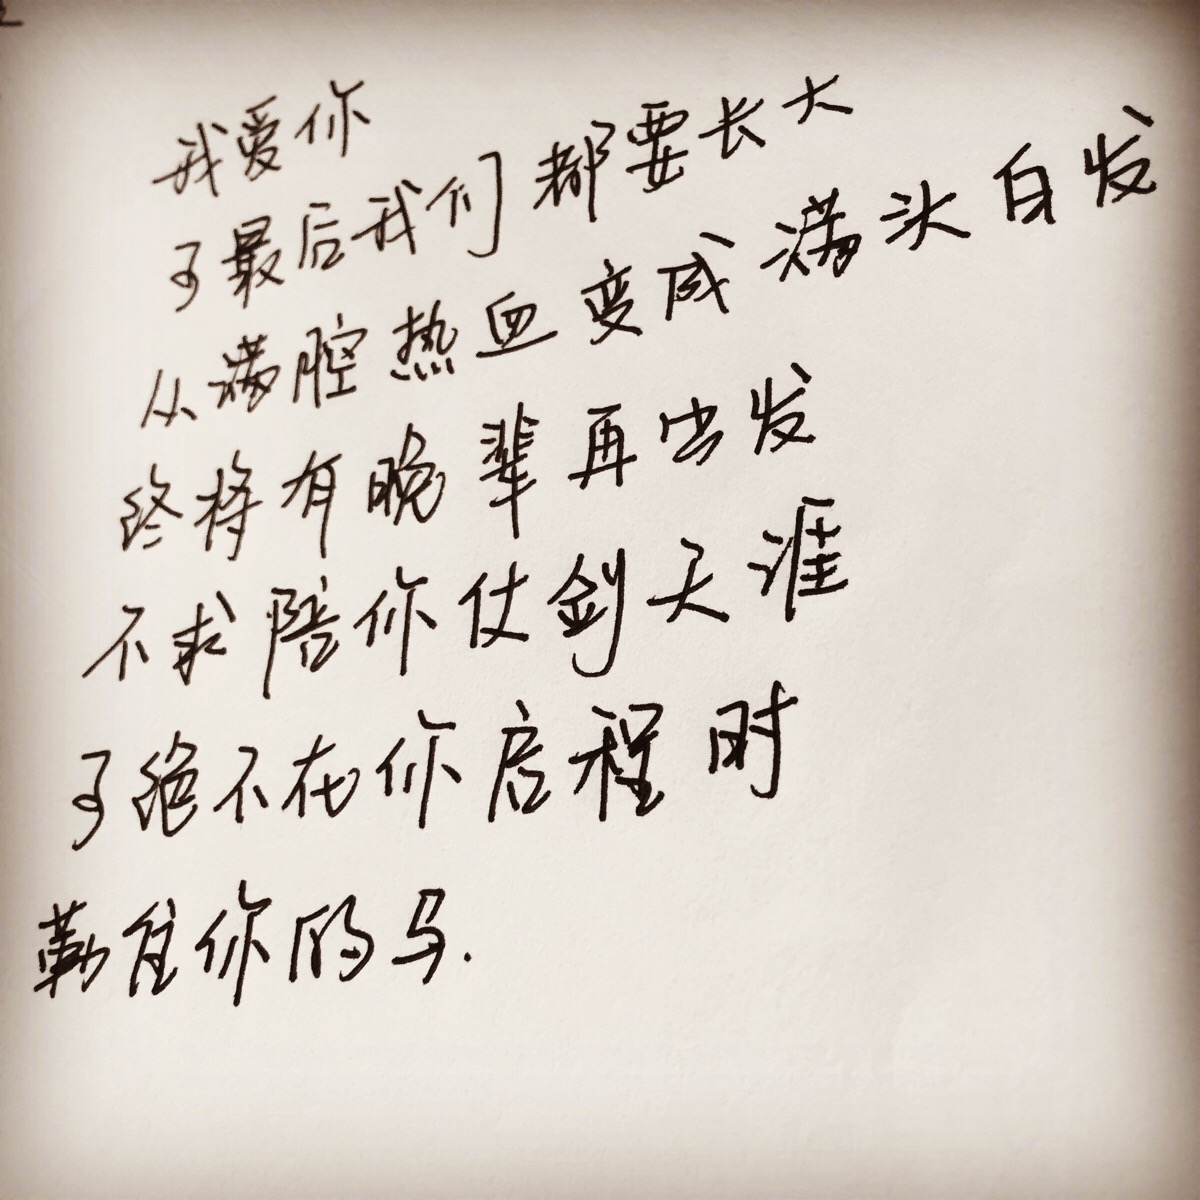 我爱你
可最后我们都要长大
从满腔热血变成满头白发
终将有晚辈再出发
不求陪你仗剑天涯
可绝不在你启程时
勒住你的马.